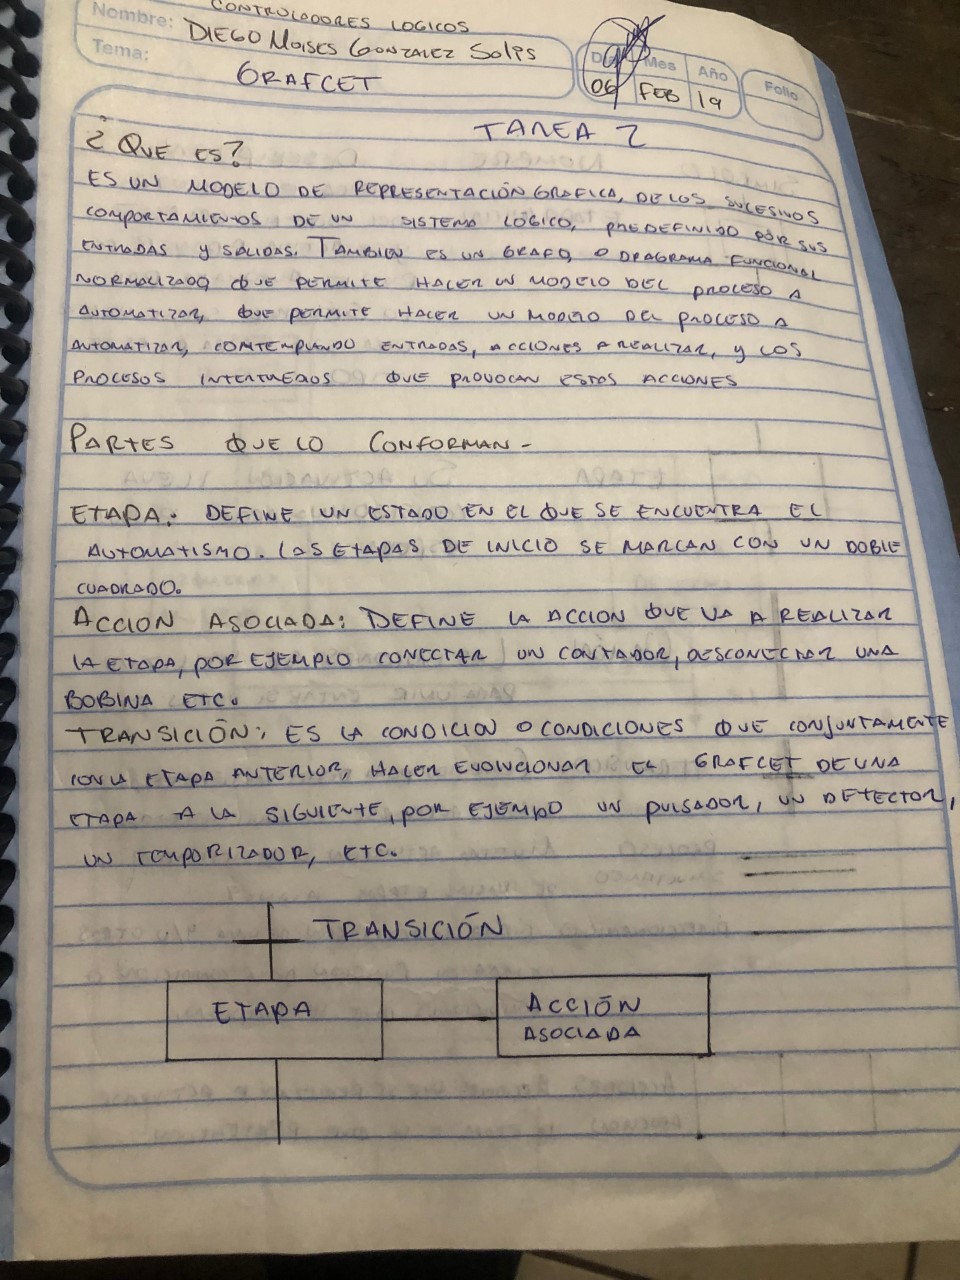 CONTROLADORES LOGICOS
Nombre: DIEGO MOISES GONZALEZ SOLIS
Tema: GRAFCET
Día Mes Año Folio
06 FEB 19
TAREA 2
¿QUE ES?
ES UN MODELO DE REPRESENTACIÓN GRAFICA, DE LOS SUCESIVOS
COMPORTAMIENTOS DE UN SISTEMA LÓGICO, PREDEFINIDO POR SUS
ENTRADAS Y SALIDAS. TAMBIEN ES UN GRAFO, O DIAGRAMA FUNCIONAL
NORMALIZADO, QUE PERMITE HACER UN MODELO DEL PROCESO A
AUTOMATIZAR, QUE PERMITE HACER UN MODELO DEL PROCESO A
AUTOMATIZAR, CONTEMPLANDO ENTRADAS, ACCIONES A REALIZAR, Y LOS
PROCESOS QUE PROVOCAN ESTAS ACCIONES
PARTES QUE LO CONFORMAN -
ETAPA: DEFINE UN ESTADO EN EL QUE SE ENCUENTRA EL
AUTOMATISMO. LAS ETAPAS DE INICIO SE MARCAN CON UN DOBLE
CUADRADO.
ACCION ASOCIADA: DEFINE LA ACCION QUE VA A REALIZAR
LA ETAPA, POR EJEMPLO CONECTAR UN CONTADOR, DESCONECTAR UNA
BOBINA ETC.
TRANSICIÓN: ES LA CONDICION O CONDICIONES QUE CONJUNTAMENTE
CON LA ETAPA ANTERIOR, HACER EVOLUCIONAR EL GRAFCET DE UNA
ETAPA A LA SIGUIENTE, POR EJEMPO UN PULSADOR, UN DETECTOR,
UN TEMPORIZADOR, ETC.
TRANSICIÓN
ETAPA
ACCIÓN
ASOCIADA